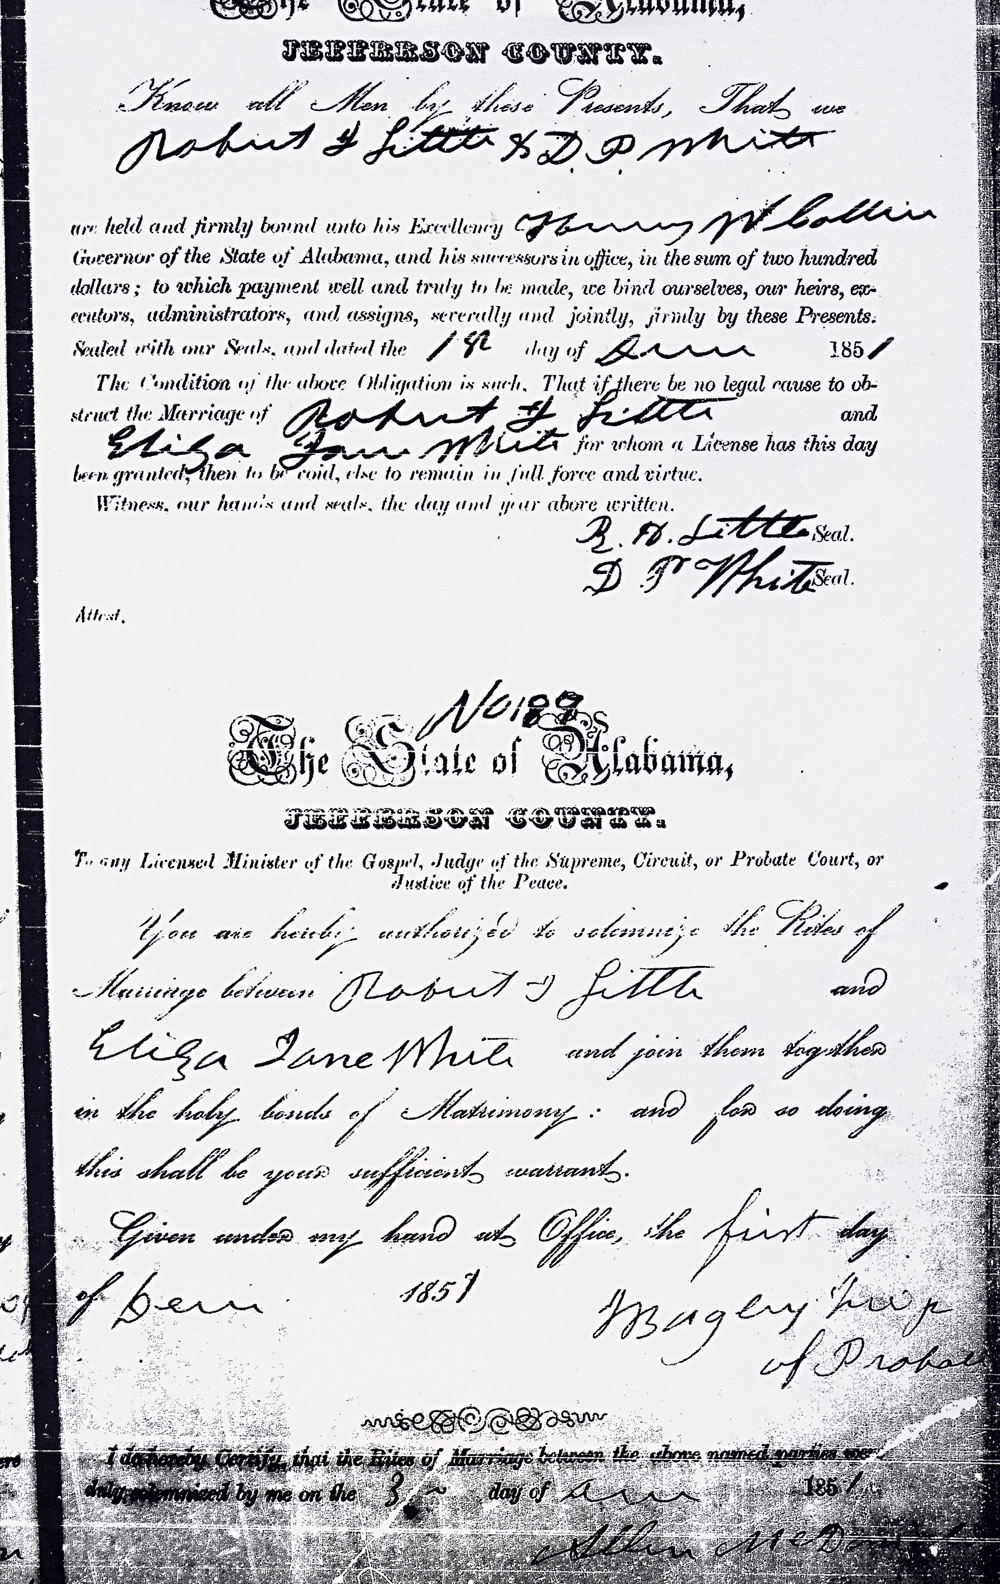 The State of Alabama,
JEFFERSON COUNTY.
Know all Men by these Presents, That we
Robert Little & D. P. White
are held and firmly bound unto his Excellency Henry W Collier
Governor of the State of Alabama, and his successors in office, in the sum of two hundred
dollars; to which payment well and truly to be made, we bind ourselves, our heirs, ex-
ecutors, administrators, and assigns, severally and jointly, firmly by these Presents.
Sealed with our Seals, and dated the 1st day of 1851
The Condition of the above Obligation is such, That if there be no legal cause to ob-
struct the Marriage of Robert Little and
Eliza Jane White for whom a License has this day
been granted, then to be void, else to remain in full force and virtue.
Witness, our hands and seals, the day and year above written.
R. Little Seal.
D P White Seal.
Attest.
No 188
The State of Alabama,
JEFFERSON COUNTY.
To any Licensed Minister of the Gospel, Judge of the Supreme, Circuit, or Probate Court, or
Justice of the Peace.
You are hereby authorized to solemnize the Rites of
Marriage between Robert Little and
Eliza Jane White and join them together
in the holy bonds of Matrimony: and for so doing
this shall be your sufficient warrant.
Given under my hand at Office, the first day
of 1851
Bagley
of Probate
I do hereby Certify, that the Rites of Marriage between the above named parties were
duly solemnized by me on the 3 day of 1851
Allen